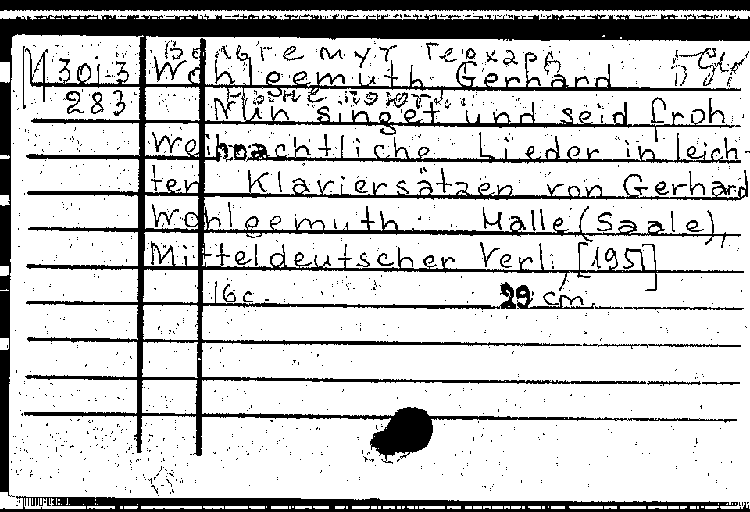 М 301-3 Wohlgemuth Gerhard 594
283 Nun singet und seid froh.
Weihnachtliche Lieder in leich-
ten Klaviersätzen von Gerhard
Wohlgemuth. Halle (Saale),
Mitteldeutscher Verl., [1951]
16 c. 29 cm.